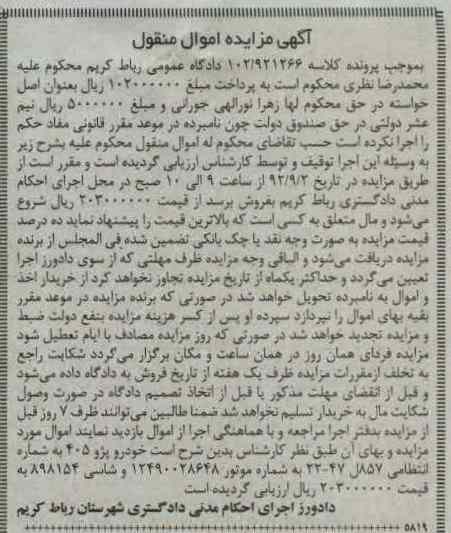 آگهی مزایده اموال منقول
بموجب پرونده کلاسه ۱۰۲/۹۲۱۲۶۶ دادگاه عمومی رباط کریم محکوم علیه
محمدرضا نظری محکوم است به پرداخت مبلغ ۱۰۲۰۰۰۰۰۰ ریال بعنوان اصل
خواسته در حق محکوم لها زهرا نورالهی جورانی و مبلغ ۵۰۰۰۰۰۰ ریال نیم
عشر دولتی در حق صندوق دولت چون نامبرده در موعد مقرر قانونی مفاد حکم
را اجرا نکرده است حسب تقاضای محکوم له اموال منقول محکوم علیه بشرح زیر
به وسیله این اجرا توقیف و توسط کارشناس ارزیابی گردیده است و مقرر است از
طریق مزایده در تاریخ ۹۲/۹/۲ از ساعت ۹ الی ۱۰ صبح در محل اجرای احکام
مدنی دادگستری رباط کریم بفروش برسد از قیمت ۲۰۳۰۰۰۰۰۰ ریال شروع
می‌شود و مال متعلق به کسی است که بالاترین قیمت را پیشنهاد نماید ده درصد
قیمت مزایده به صورت وجه نقد یا چک بانکی تضمین شده فی المجلس از برنده
مزایده دریافت می‌شود و الباقی وجه مزایده ظرف مهلتی که از سوی دادورز اجرا
تعیین می‌گردد و حداکثر یکماه از تاریخ مزایده تجاوز نخواهد کرد از خریدار اخذ
و اموال به نامبرده تحویل خواهد شد در صورتی که برنده مزایده در موعد مقرر
بقیه بهای اموال را نپردازد سپرده او پس از کسر هزینه مزایده بنفع دولت ضبط
و مزایده تجدید خواهد شد در صورتی که روز مزایده مصادف با ایام تعطیل شود
مزایده فردای همان روز در همان ساعت و مکان برگزار می‌گردد شکایت راجع
به تخلف ازمقررات مزایده ظرف یک هفته از تاریخ فروش به دادگاه داده می‌شود
و قبل از انقضای مهلت مذکور یا قبل از اتخاذ تصمیم دادگاه در صورت وصول
شکایت مال به خریدار تسلیم نخواهد شد ضمنا طالبین می‌توانند ظرف ۷ روز قبل
از مزایده بدفتر اجرا مراجعه و با هماهنگی اجرا از اموال بازدید نمایند اموال مورد
مزایده و بهای آن طبق نظر کارشناس بدین شرح است خودرو پژو ۴۰۵ به شماره
انتظامی ۸۵۷ل ۴۷-۲۲ به شماره موتور ۱۲۴۹۰۰۲۸۶۴۸ و شاسی ۸۹۸۱۵۴ به
قیمت ۲۰۳۰۰۰۰۰۰ ریال ارزیابی گردیده است
دادورز اجرای احکام مدنی دادگستری شهرستان رباط کریم
۵۸۱۹